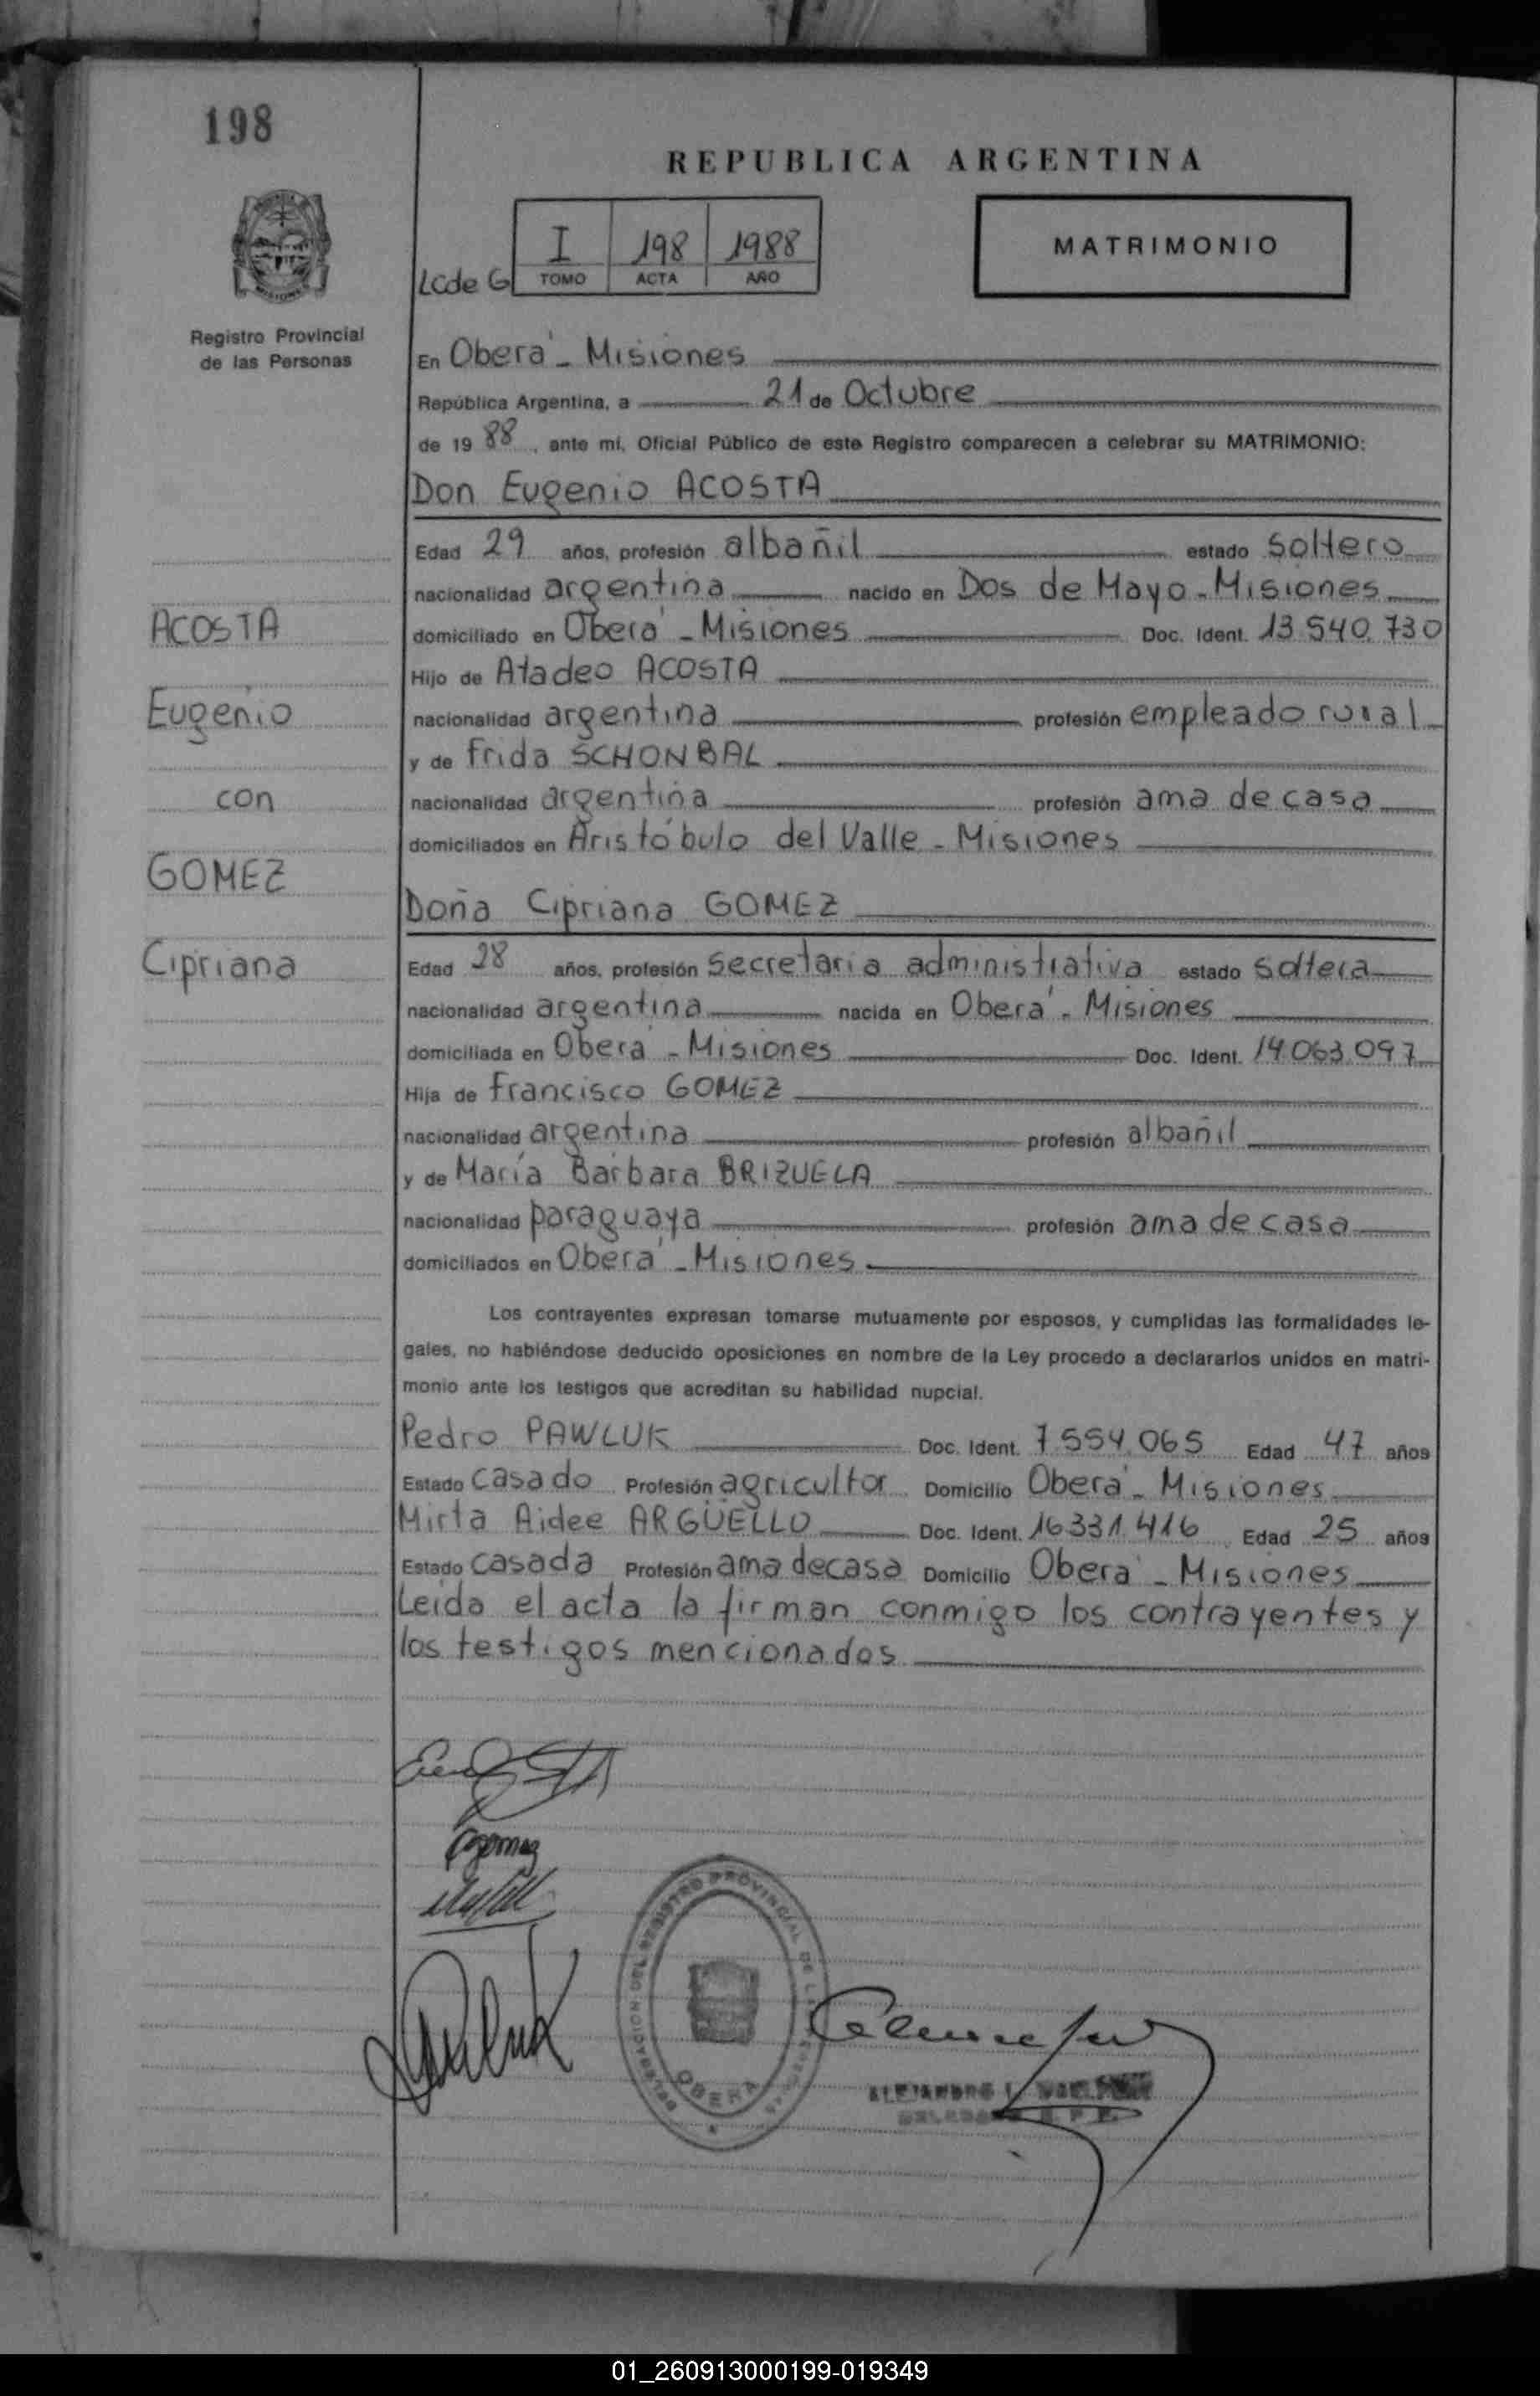 198
REPUBLICA ARGENTINA
I 198 1988
TOMO ACTA AÑO
MATRIMONIO
Lcde G
Registro Provincial
de las Personas
En Oberá - Misiones
República Argentina, a 21 de Octubre
de 1988, ante mí, Oficial Público de este Registro comparecen a celebrar su MATRIMONIO:
Don Eugenio ACOSTA
Edad 29 años, profesión albañil estado soltero
nacionalidad argentina nacido en Dos de Mayo - Misiones
domiciliado en Oberá - Misiones Doc. Ident. 13.540.730
Hijo de Atadeo ACOSTA
nacionalidad argentina profesión empleado rural
y de Frida SCHONBAL
nacionalidad argentina profesión ama de casa
domiciliados en Aristóbulo del Valle - Misiones
ACOSTA
Eugenio
con
GOMEZ
Cipriana
Doña Cipriana GOMEZ
Edad 28 años, profesión secretaria administrativa estado soltera
nacionalidad argentina nacida en Oberá - Misiones
domiciliada en Oberá - Misiones Doc. Ident. 14.063.097
Hija de Francisco GOMEZ
nacionalidad argentina profesión albañil
y de María Barbara BRIZUELA
nacionalidad paraguaya profesión ama de casa
domiciliados en Oberá - Misiones
Los contrayentes expresan tomarse mutuamente por esposos, y cumplidas las formalidades le-
gales, no habiéndose deducido oposiciones en nombre de la Ley procedo a declararlos unidos en matri-
monio ante los testigos que acreditan su habilidad nupcial.
Pedro PAWLUK Doc. Ident. 7.554.065 Edad 47 años
Estado casado Profesión agricultor Domicilio Oberá - Misiones
Mirta Aidee ARGÜELLO Doc. Ident. 16.331.416 Edad 25 años
Estado casada Profesión ama de casa Domicilio Oberá - Misiones
Leída el acta la firman conmigo los contrayentes y
los testigos mencionados
CGomez
DELEGACION DEL REGISTRO PROVINCIAL DE LAS PERSONAS
OBERA
ALEJANDRO
01_260913000199-019349